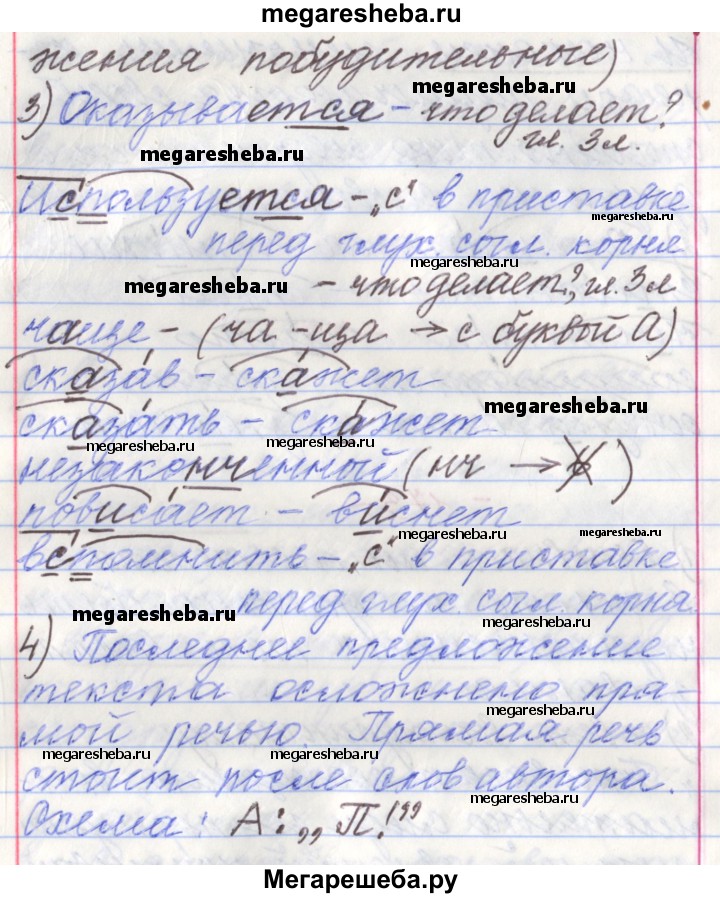 megaresheba.ru
жения побудительные)
megaresheba.ru
3) Оказывается – что делает?
гл. 3 л.
megaresheba.ru
Используется – „с“ в приставке
megaresheba.ru
перед глух. согл. корня
megaresheba.ru
megaresheba.ru – что делает?, гл. 3 л
чаще – (ча - ща → с буквой А)
сказав – скажет
megaresheba.ru
сказать – скажет
megaresheba.ru megaresheba.ru
незаконченный (нч → ь)
повисает – виснет
megaresheba.ru megaresheba.ru
вспомнить – „с“ в приставке
перед глух. согл. корня.
megaresheba.ru
megaresheba.ru
4) Последнее предложение
текста осложнено пря-
megaresheba.ru
мой речью. Прямая речь
megaresheba.ru megaresheba.ru
стоит после слов автора.
megaresheba.ru
Схема: А: „П!”
Мегарешеба.ру